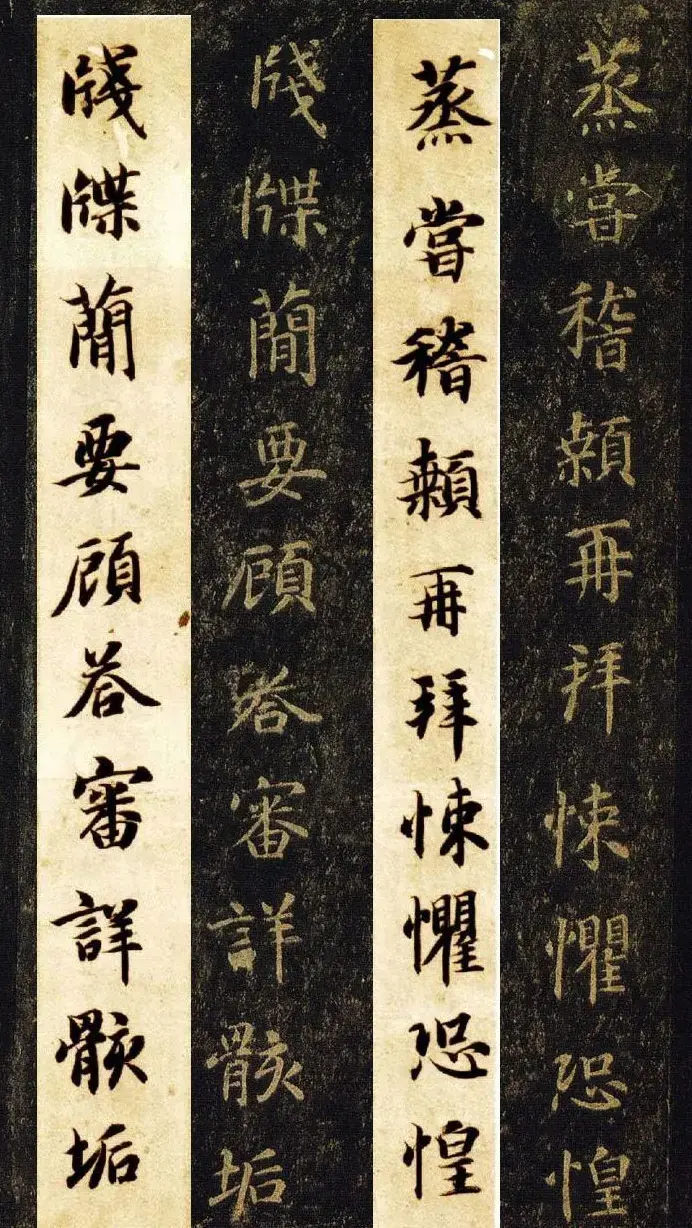 蒸嘗稽顙再拜悚懼恐惶
蒸嘗稽顙再拜悚懼恐惶
牋牒蕳要頋荅審詳骸垢
牋牒蕳要頋荅審詳骸垢